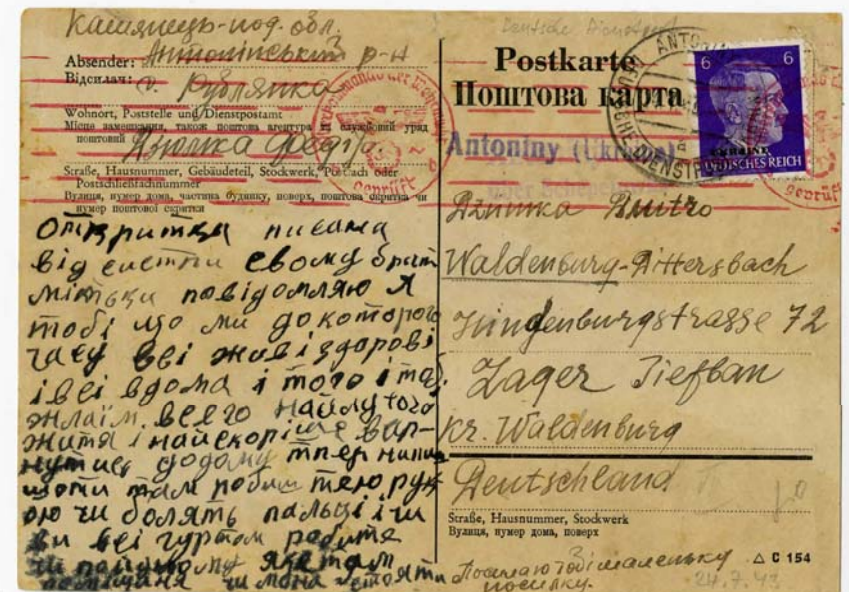 Камянець-под. обл.
Absender: Антонінський р-н
Відсилач: с. Рублянка
Wohnort, Poststelle und Dienstpostamt
Місце замешкання, також поштова агентура та службовий уряд
поштовий
Straße, Hausnummer, Gebäudeteil, Stockwerk, Postfach oder
Postschließfachnummer
Вулиця, нумер дома, частина будинку, поверх, поштова скритка чи
нумер поштової скритки
Откритка писана
від систри свому брат
повідомляю я
тобі що ми до которого
часу всі живі здорові
і всі вдома і того і тоб
жлаїм всего найлутого
житя і найскоріше вар-
нутис додому тпер напиш
шоти там робиш твою рук
ою чи болять пальці і чи
ви всі гуртом работе
чи
чи мона
Deutsche Dienstpost
Postkarte
Поштова карта
ANTONINY
DEUTSCHE DIENSTPOST
6 6
UKRAINE
DEUTSCHES REICH
geprüft
b
geprüft
Antoniny (Ukraine)
über
Дзюмка Дмитро
Waldenburg-Dittersbach
Hindenburgstrasse 72
Lager Tiefbau
Kr. Waldenburg
Deutschland
Straße, Hausnummer, Stockwerk
Вулиця, нумер дома, поверх
Посилаю тобі маленьку
посилку.
C 154
24.7.43